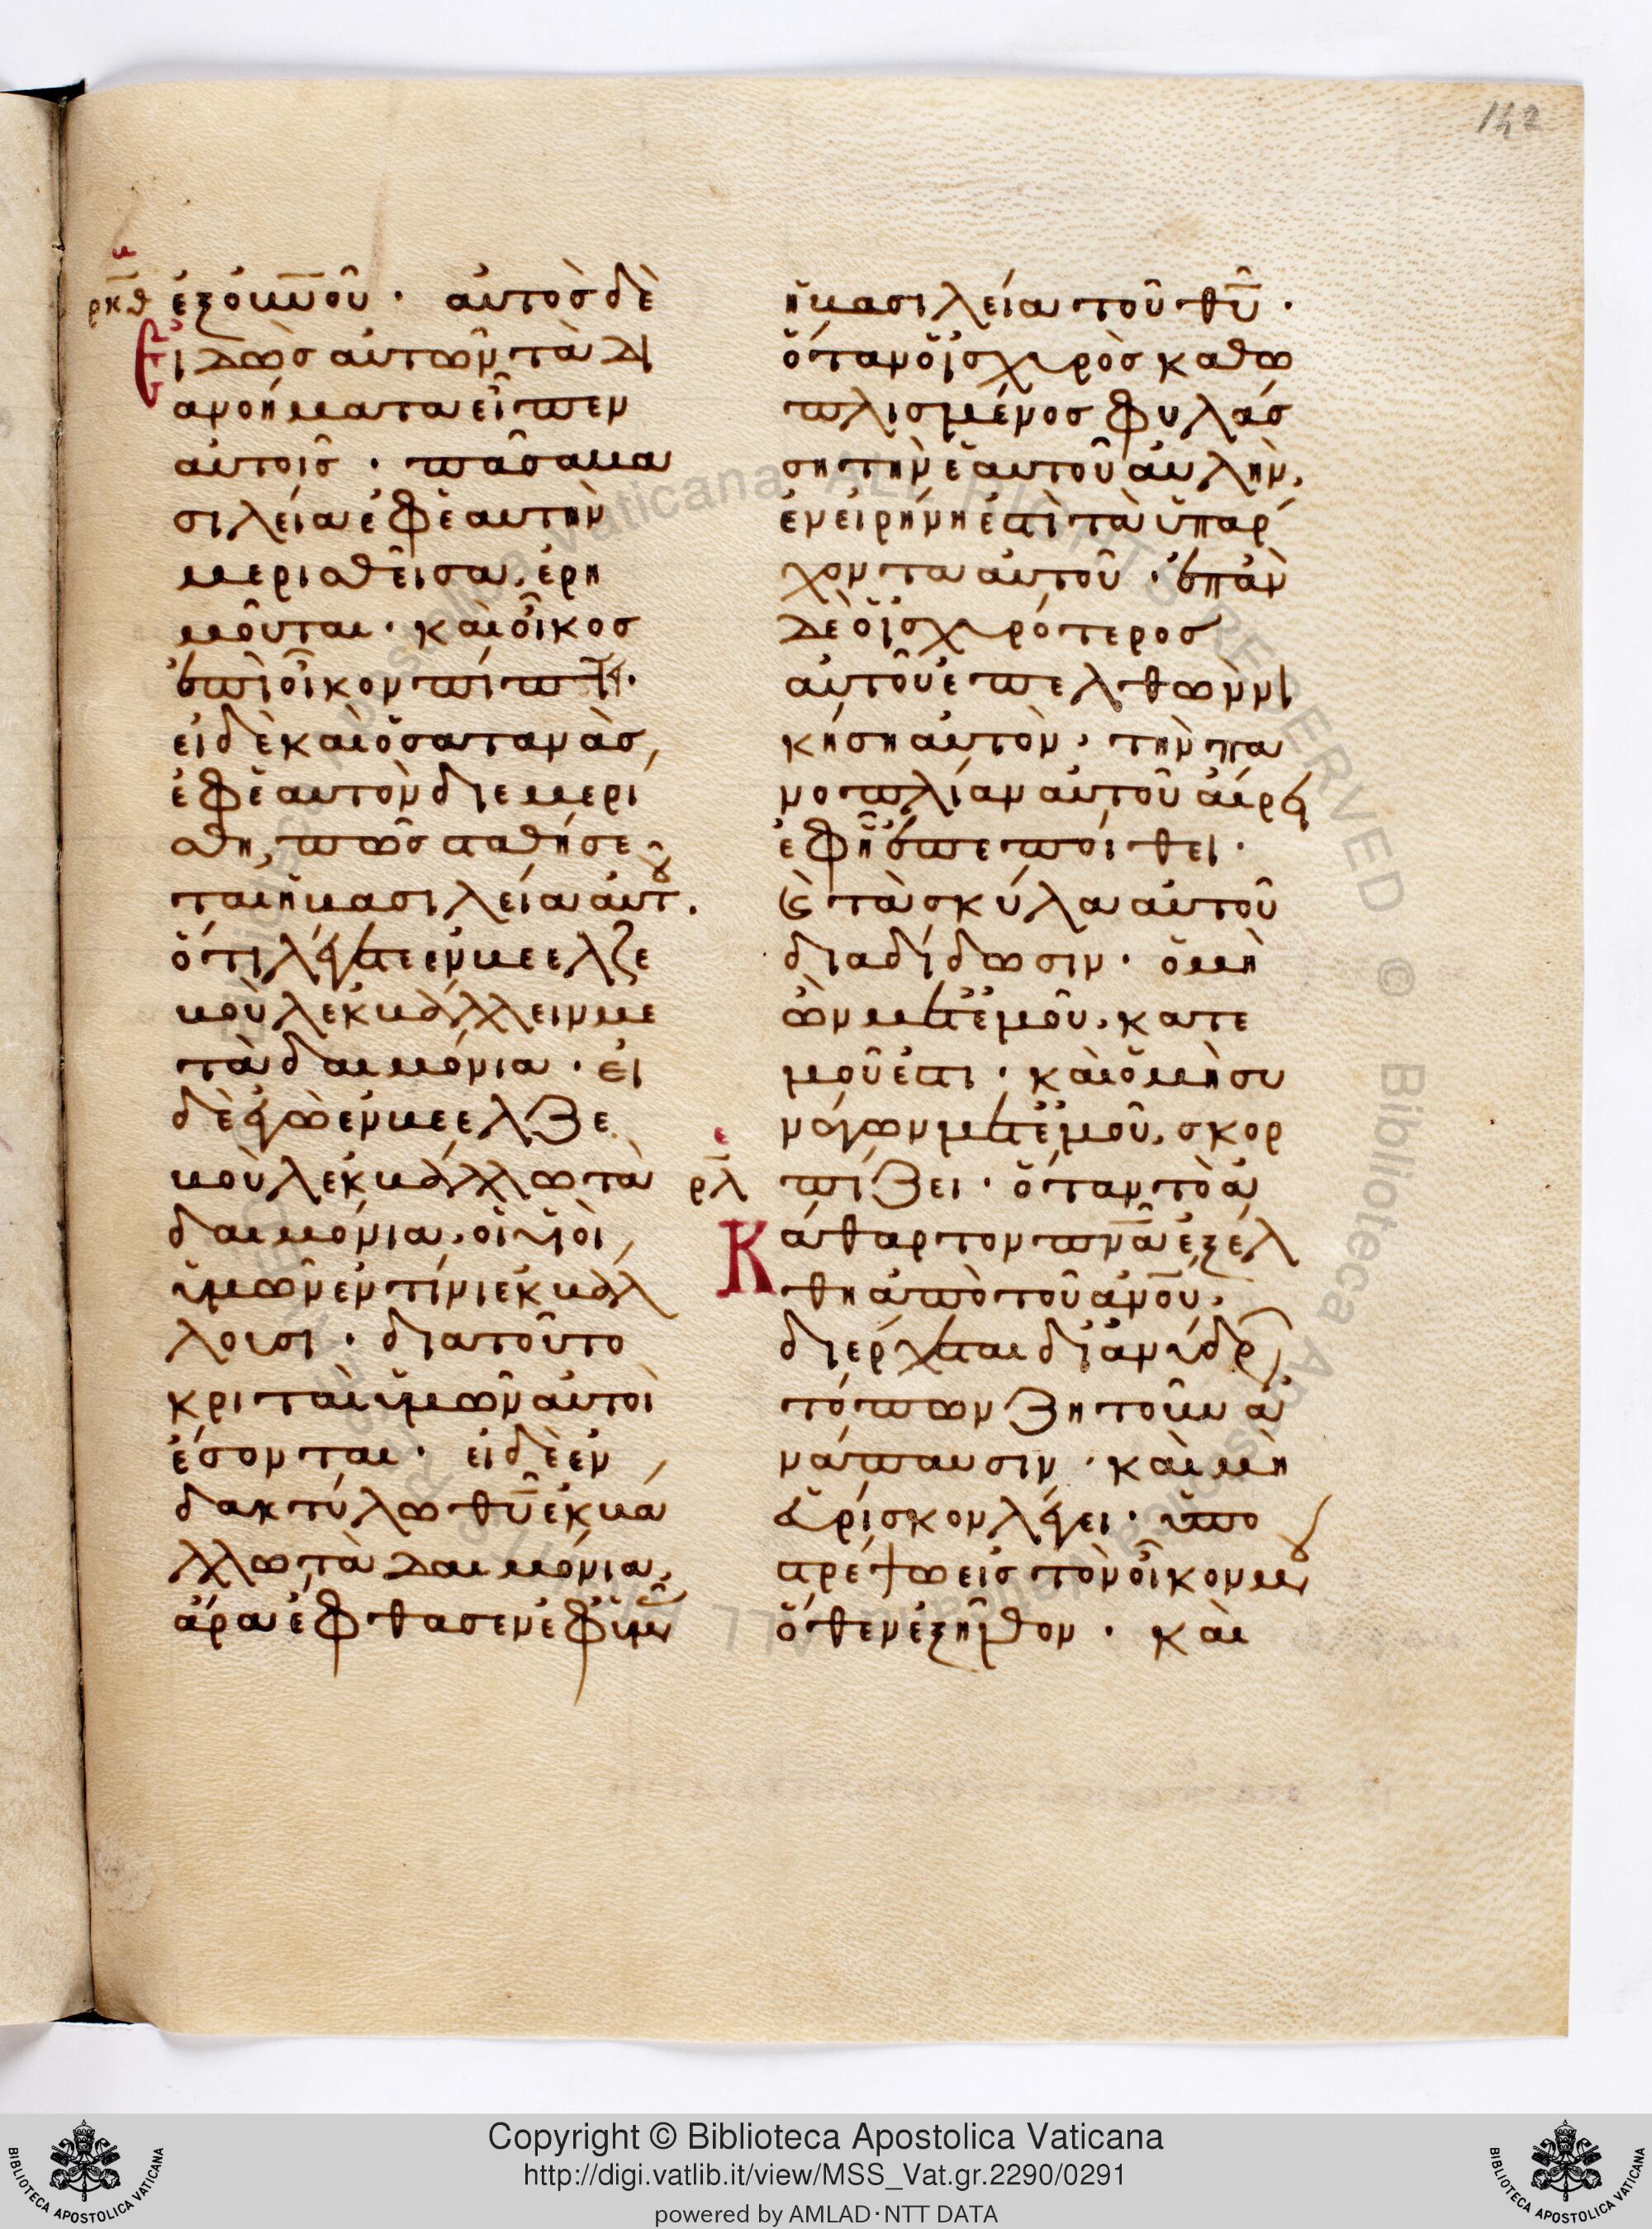 142
ρκθ ἐξ οὐ̅ν̅ο̅υ̅ · αὐτὸς δὲ
εἰδὼς αὐτῶν τὰ δι
ανοήματα εἶπεν
αὐτοῖς · πᾶσα βα
σιλεία ἐφ ἑαυτὴν
μερισθεῖσα, ἐρη
μοῦται · καὶ οἶκος
ἐπὶ οἶκον πίπτει ·
εἰ δὲ καὶ ὁ σατανὰς,
ἐφ ἑαυτὸν διεμερί
σθη, πῶς σταθήσε
ται ἡ βασιλεία αὐτου.
ὅτι λέγετε ἐν βεελζε
βοὺλ ἐκβάλλειν με
τὰ δαιμόνια · εἰ
δὲ ἐγὼ ἐν βεελζε
βοὺλ ἐκβάλλω τὰ
δαιμόνια, οἱ υἱοὶ,
ὑμῶν ἐν τίνι ἐκβάλ
λουσι · διατοῦτο
κριταὶ ὑμῶν αὐτοὶ
ἔσονται · εἰ δὲ ἐν,
δακτύλω θ̅υ̅ ἐκβά
λλω τὰ δαιμόνια,
ἄρα ἔφθασεν ἐφ ὑμᾶς
ἡ βασιλεία τοῦ θ̅υ̅ ·
ὅταν ὁ ἰσχυρὸς καθω
πλισμένος φυλάσ
ση τὴν ἑαυτοῦ αὐλὴν,
ἐν εἰρήνη ἐστὶ τὰ ὑπάρ
χοντα αὐτοῦ · ἐπὰν
δὲ ὁ ἰσχυρότερος
αὐτοῦ ἐπελθὼν νι
κήση αὐτὸν · τὴν πα
νοπλίαν αὐτοῦ αἴρει
ἐφ ῆ ἐπεποίθει ·
καὶ τὰ σκύλα αὐτοῦ
διαδίδωσιν · ὁ μὴ
ὢν μετ ἐμοῦ, κατε
μοῦ ἐστι · καὶ ὁ μὴ συ
νάγων μετ ἐμοῦ, σκορ
ρλ πίζει · ὅταν τὸ ἀ
Κάθαρτον π̅ν̅α̅ ἐξέλ
θη ἀπὸ τοῦ α̅ν̅ο̅υ̅,
διέρχεται δι ἀνύδρων
τόπων ζητοῦν ἀ
νάπαυσιν · καὶ μὴ
εὑρίσκον λέγει · ὑπο
στρέψω εἰς τὸν οἶκον μου
ὅθεν ἐξῆλθον · καὶ
Copyright © Biblioteca Apostolica Vaticana
http://digi.vatlib.it/view/MSS_Vat.gr.2290/0291
powered by AMLAD·NTT DATA